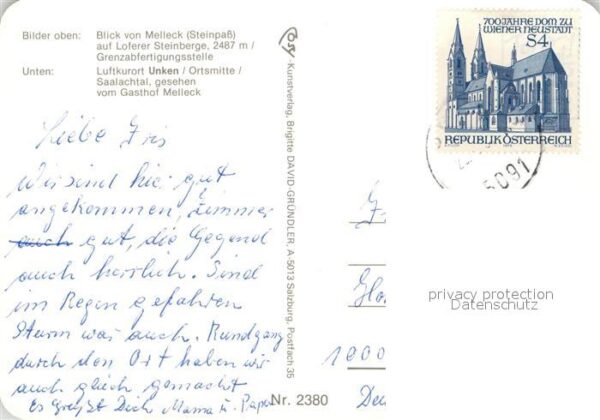 Bilder oben: Blick von Melleck (Steinpaß)
auf Loferer Steinberge, 2487 m /
Grenzabfertigungsstelle
Unten: Luftkurort Unken / Ortsmitte /
Saalachtal, gesehen
vom Gasthof Melleck
Liebe Iris
Wir sind hier gut
angekommen, Zimmer
auch gut, die Gegend
auch herrlich. Sind
im Regen gefahren
Sturm was auch. Rundgang
durch den Ort haben wir
auch gleich gemacht
Es Grüßt Dich Mama u. Papa
Kunstverlag, Brigitte DAVID-GRÜNDLER, A-5013 Salzburg, Postfach 35
Nr. 2380
700 JAHRE DOM ZU
WIENER NEUSTADT
S4
REPUBLIK ÖSTERREICH
5091
privacy protection
Datenschutz
1000